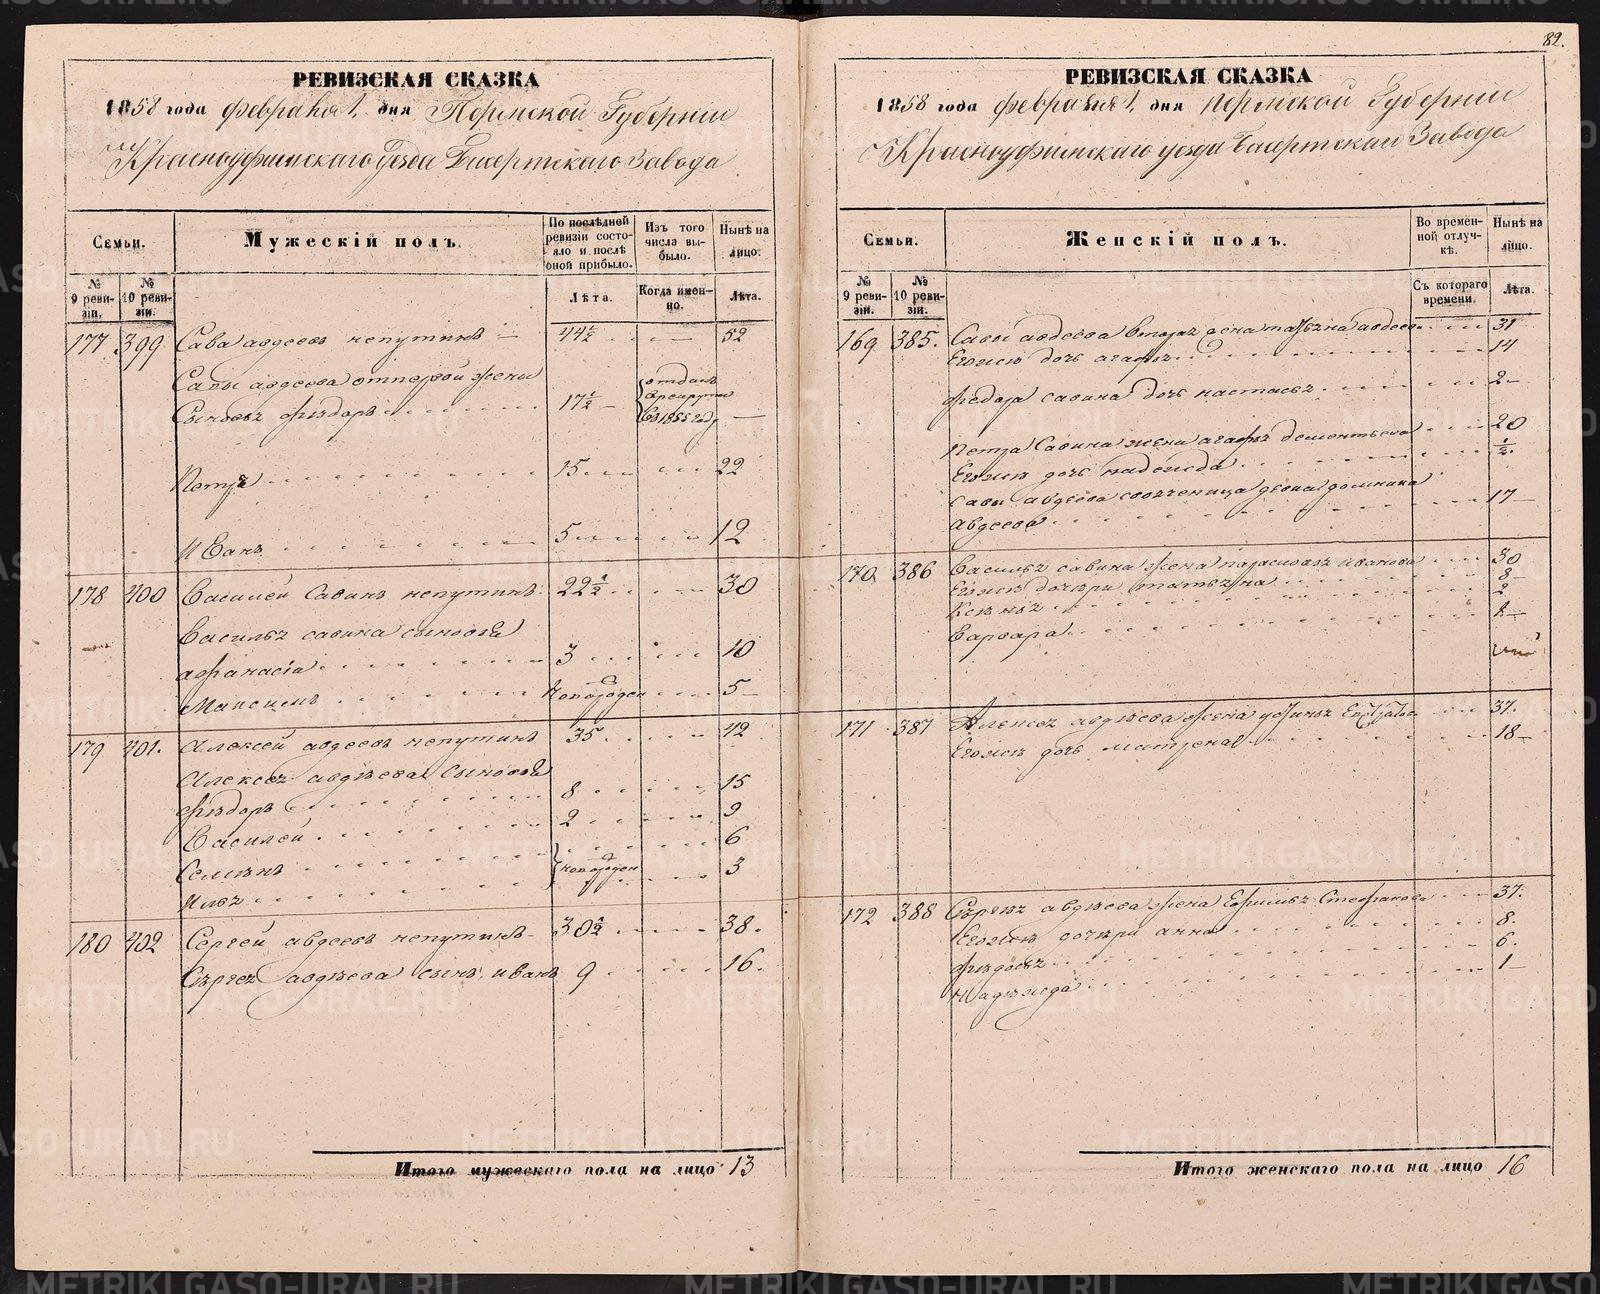 82.
РЕВИЗСКАЯ СКАЗКА
1858 года февраля 1, дня Пермской Губерніи
Красноуфимскаго уезда Бисертскаго Завода
Семьи.
№ 9 ревизіи.
№ 10 ревизіи.
Мужескій полъ.
По послѣдней ревизіи состояло и послѣ оной прибыло.
Лѣта.
Изъ того числа выбыло.
Когда именно.
Нынѣ на лицо.
Лѣта.
177 399 Сава авдеевъ непутинъ 44½ 52
Савы авдеева отпервой жены
Сыновья фѣдоръ 17½ отданъ врекруты въ 1855 году —
Петръ 15 22
Иванъ 5 12
178 400 Василей Савинъ непутинъ 22½ 30
Василья савина сыновья
афанасій 3 10
Максимъ новорожден 5
179 401. Алексей авдеевъ непутинъ 35 42
Алексея авдѣева Сыновья
фѣдоръ 8 15
Василей 2 9
Семенъ 6
новорожден
Илья 3
180 402 Сергей авдеевъ непутинъ 30½ 38.
Сѣргея авдѣева сынъ иванъ 9 16.
Итого мужескаго пола на лицо 13
РЕВИЗСКАЯ СКАЗКА
1858 года февраля 1, дня Пермской Губерніи
Красноуфимскаго уезда Бисертскаго Завода
Семьи.
№ 9 ревизіи.
№ 10 ревизіи.
Женскій полъ.
Во временной отлучкѣ.
Съ котораго времени.
Нынѣ на лицо.
Лѣта.
169 385. Савы авдеева вторая жена татьяна авдеева 31
Егожъ дочь агафья 14
федора савина дочь настасья 2
Петра Савина жена агафья дементьева 20
Егожъ дочь надежда ½
Савы авдеева девка домника 17
Авдеева
170 386 Василья савина жена парасковья иванова 30
Егожъ дочѣри татьяна 8
Ксѣнья 2
Варвара 1
171 387 Алексея авдѣева жена устинья 37.
Егожъ дочь матрена 18
172 388 Сѣргея авдѣева жена Ефимья Стефанова 37.
Егожъ дочѣри анна 8.
фѣдосья 6.
Надѣжда 1
Итого женскаго пола на лицо 16
METRIKI.GASO-URAL.RU